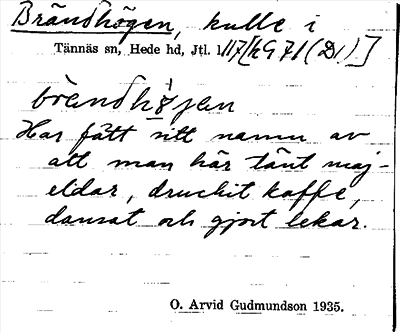 Brändhögen, kulle i
Tännäs sn, Hede hd, Jtl.
brändhöjen
Har fått sitt namn av
att man här tänt maj-
eldar, druckit kaffe,
dansat och gjort lekar.
O. Arvid Gudmundson 1935.